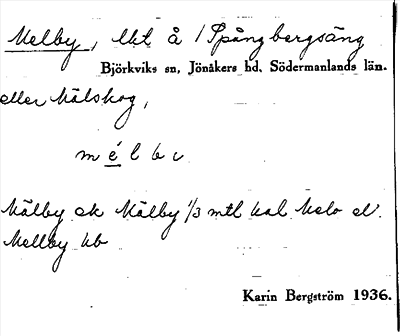 Melby, lht å / Spångbergsäng
Björkviks sn, Jönåkers hd, Södermanlands län.
eller Mälskog,
m é l b
Mälby ek Mälby 1/3 mtl kal. Melo el.
Mellby kb
Karin Bergström 1936.